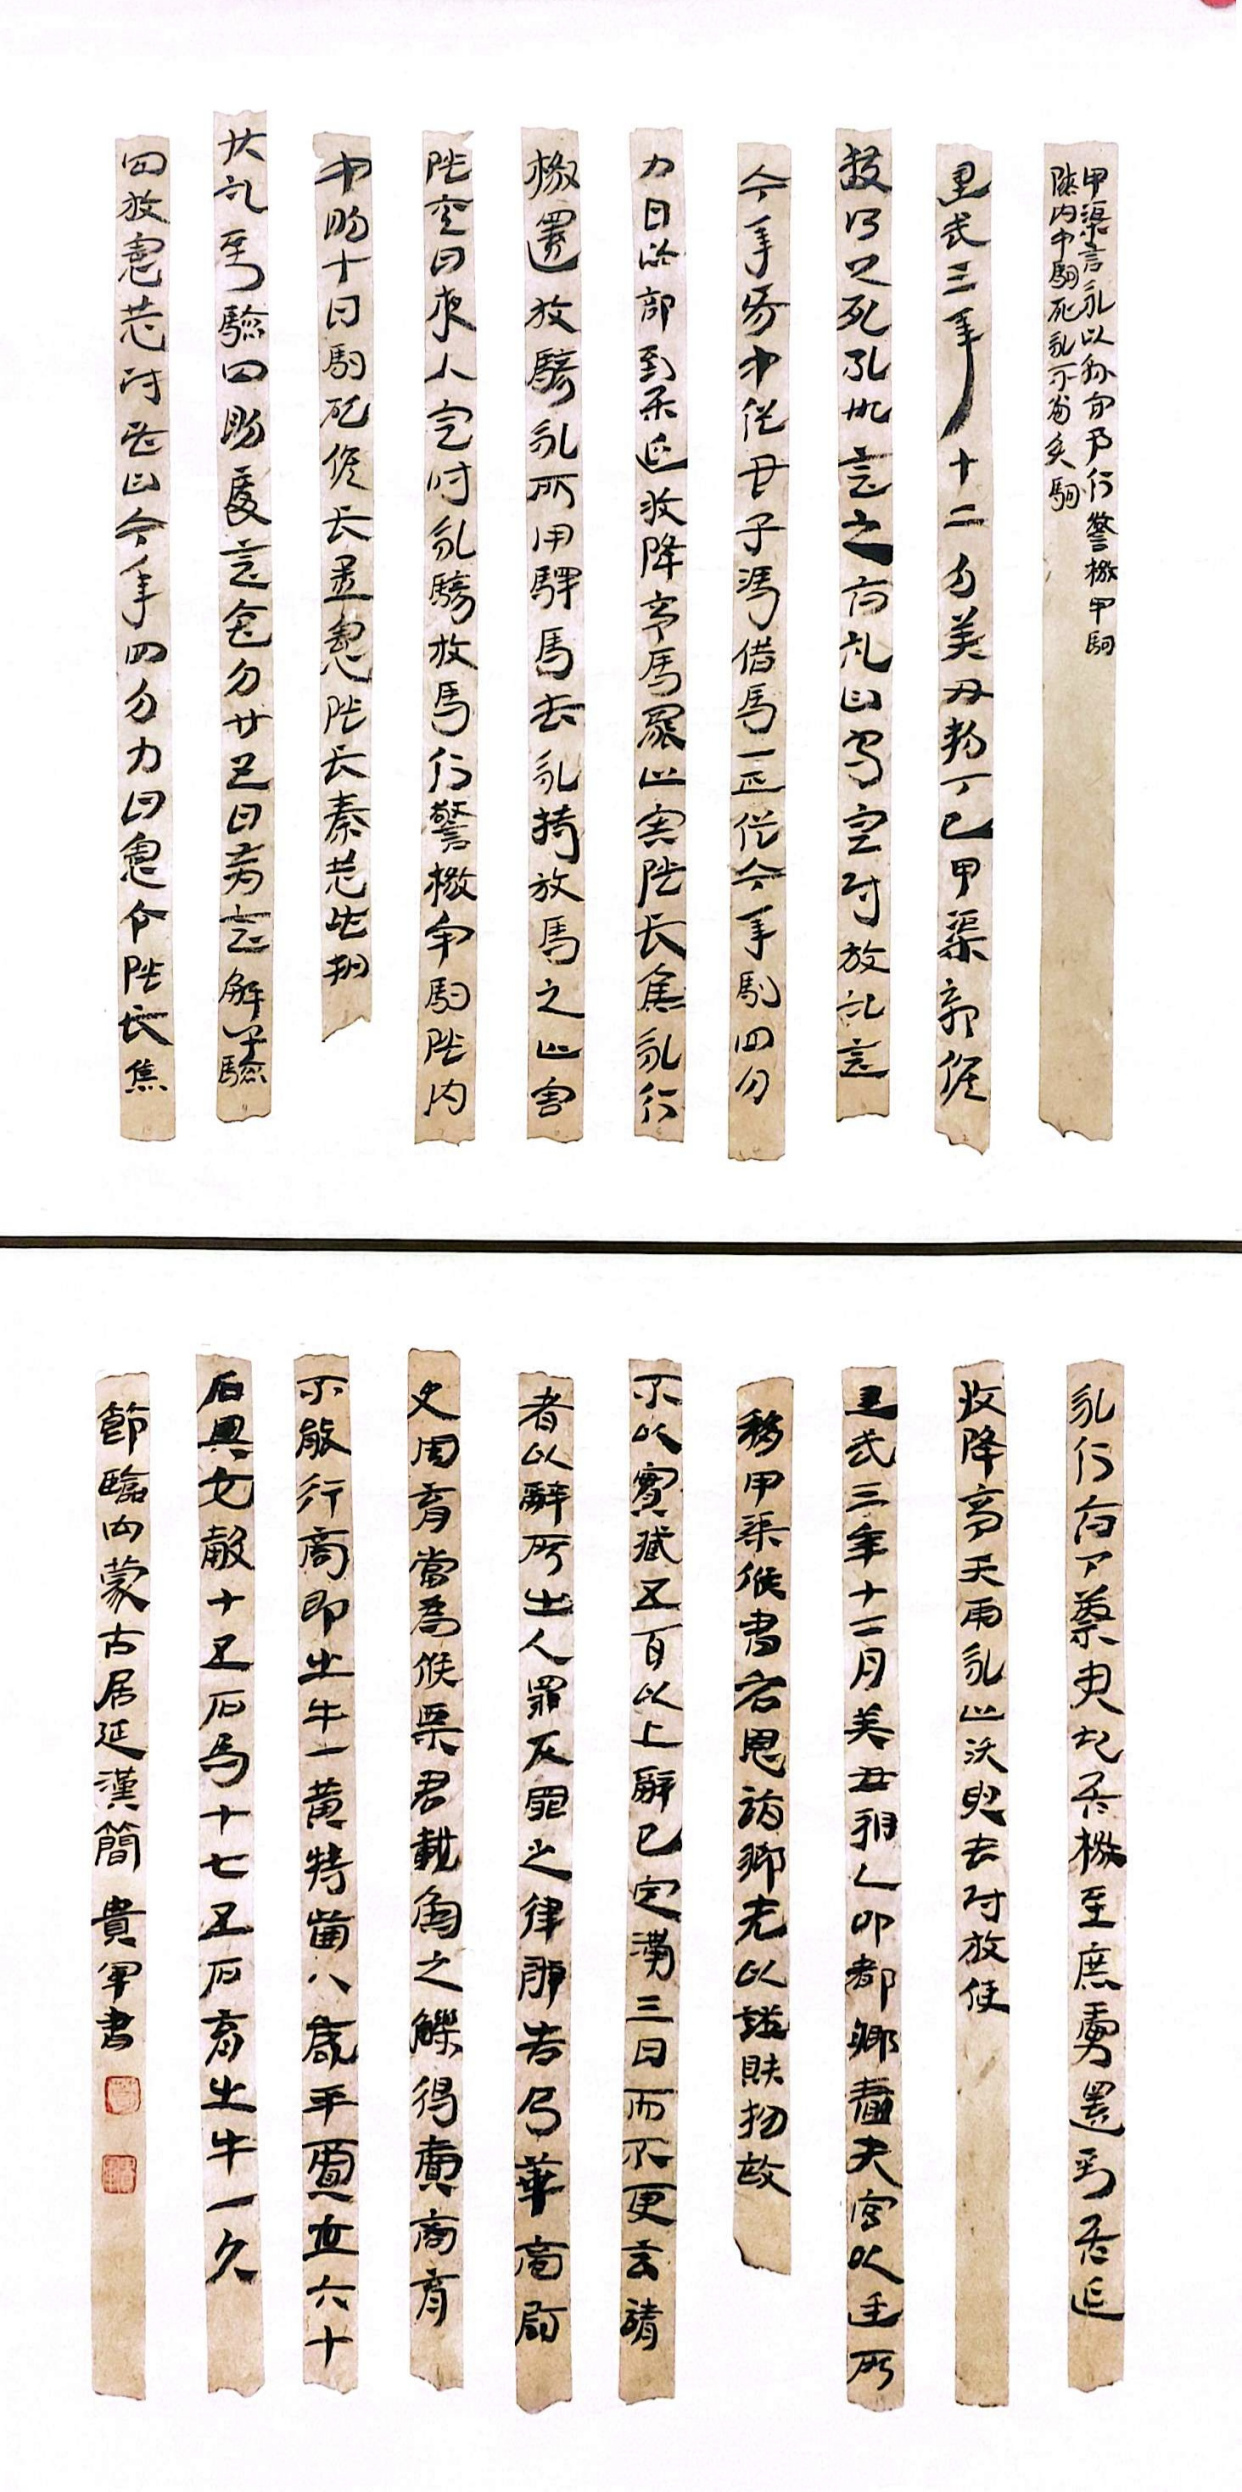 甲渠言永以縣官事行警檄牢駒
隧內中駒死永不當負駒
建武三年十二月癸丑朔丁巳甲渠鄣候
獲叩頭死罪敢言之府記曰守塞尉放記言
今年正月中從女子馮借馬一匹從今年駒四月
九日詣部到居延收降亭馬罷止害隧長焦永行
檄還放騎永所用驛馬去永持放馬之止害
隧其日夜人定時永騎放馬行警檄牢駒隧內
中明十日駒死候長孟憲隧長秦恭皆知
狀記到驗問明處言會月廿五日前言解謹驗
問放憲恭辭皆曰今年四月九日憲令隧長焦
永行府卿蔡君起居檄至庶虜還到居延
收降亭天雨永止須臾去尉放使
建武三年十二月癸丑朔乙卯都鄉嗇夫宮以廷所
移甲渠候書召恩詣鄉先以證財物故
不以實臧五百以上辭已定滿三日而不更言請
者以辭所出入罪反罪之律辨告乃爰
史周育當為候粟君載魚之觻得賣商育
不能行商即出牛一黃特齒八歲平賈直六十
石與它穀十五石為十七五石育出牛一久
節臨內蒙古居延漢簡 貴軍書